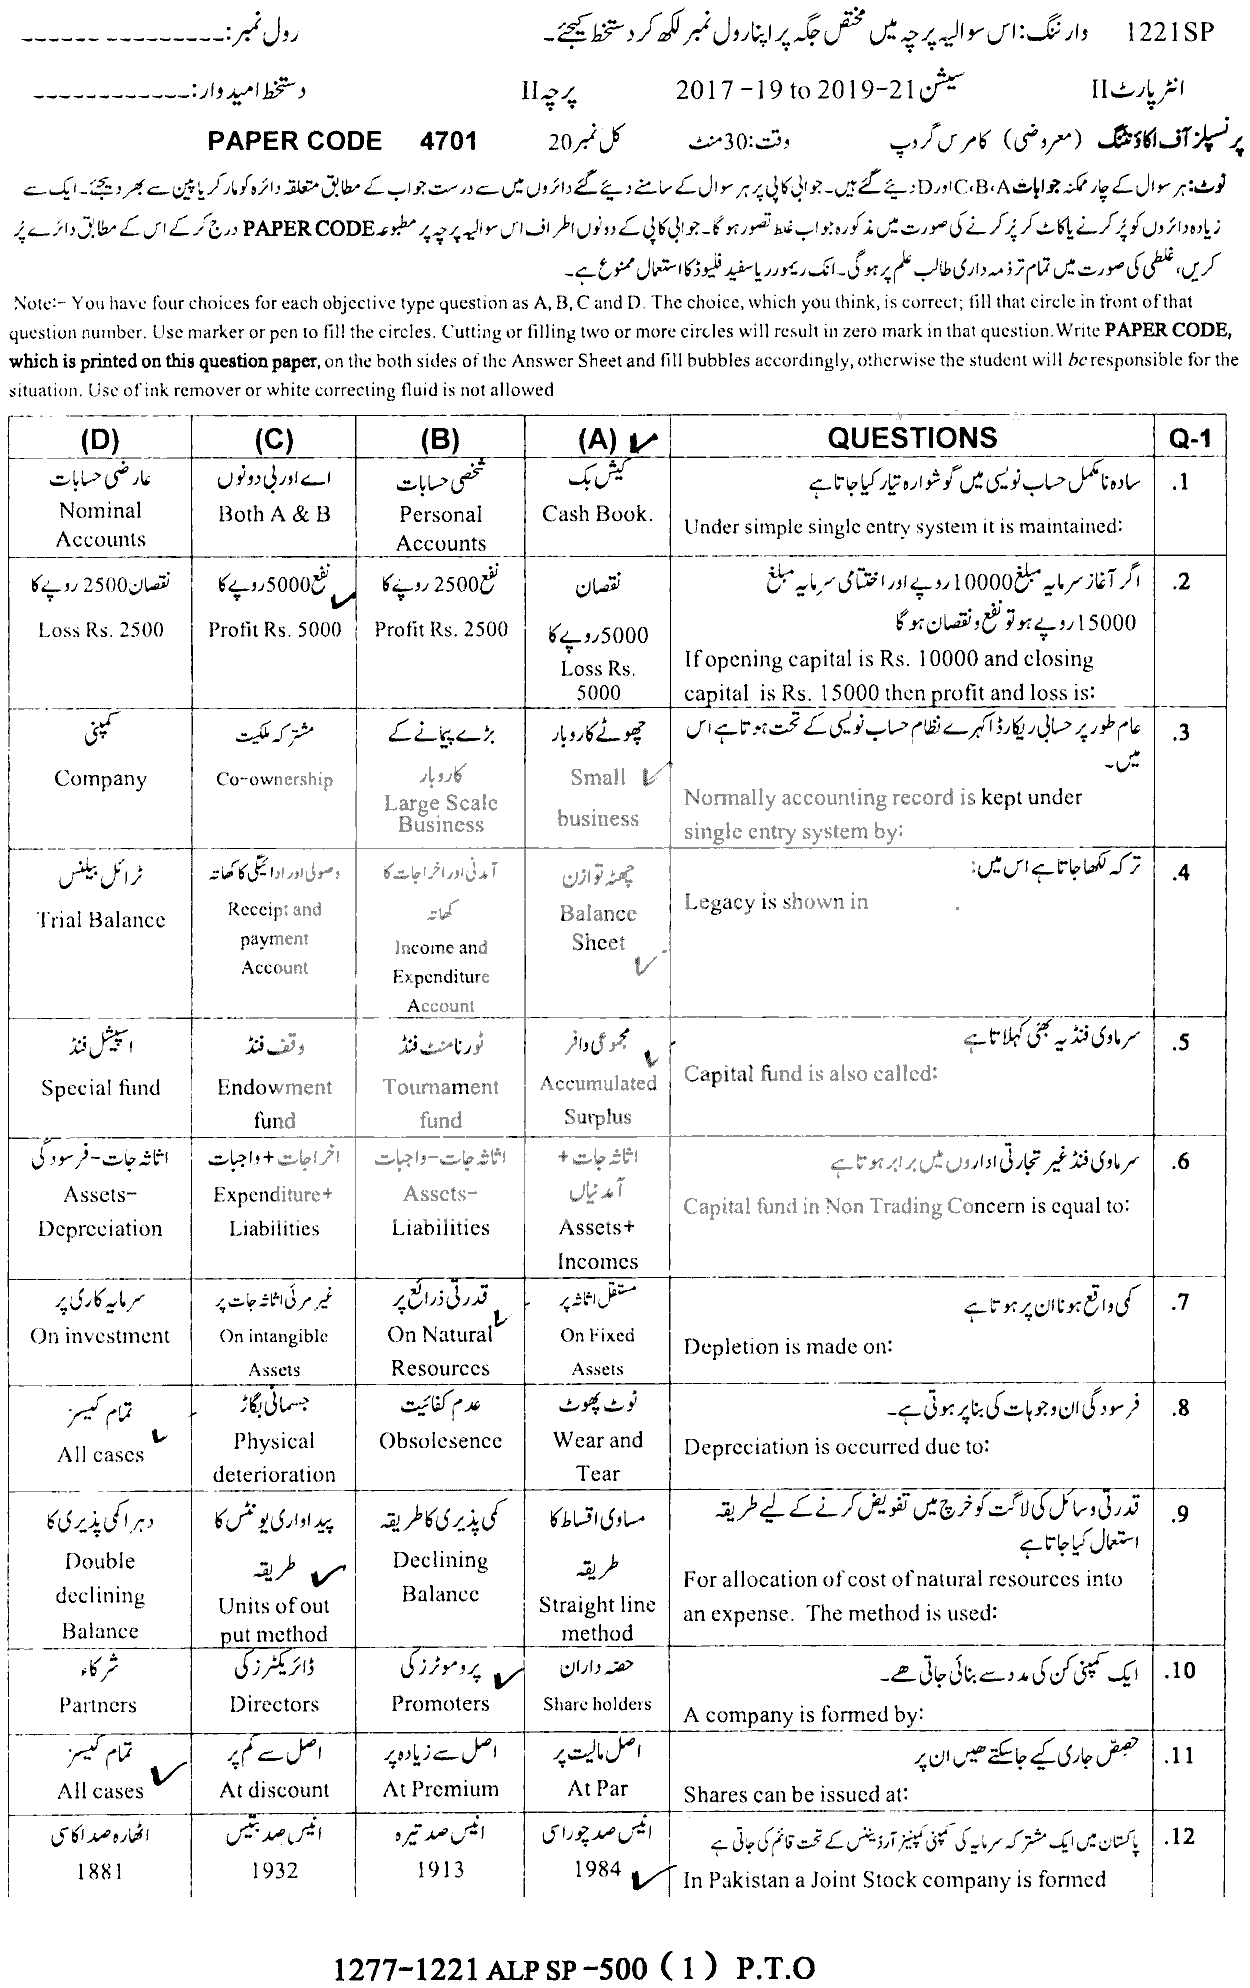 1221SP وارننگ: اس سوالیہ پرچہ میں مختص جگہ پر اپنا رول نمبر لکھ کر دستخط کیجئے۔ رول نمبر: ---------------
انٹر پارٹ II سیشن 2017-19 to 2019-21 پرچہ II دستخط امیدوار: ------------
پرنسپلز آف اکاؤنٹنگ (معروضی) کامرس گروپ وقت: 30 منٹ کل نمبر 20 PAPER CODE 4701
نوٹ: ہر سوال کے چار ممکنہ جوابات A، B، C اور D دیئے گئے ہیں۔ جوابی کاپی پر ہر سوال کے سامنے دیئے گئے دائروں میں سے درست جواب کے مطابق متعلقہ دائرہ کو مارکر یا پین سے بھر دیجئے۔ ایک سے
زیادہ دائروں کو پُر کرنے یا کاٹ کر پُر کرنے کی صورت میں مذکورہ جواب غلط تصور ہو گا۔ جوابی کاپی کے دونوں اطراف اس سوالیہ پرچہ پر مطبوعہ PAPER CODE درج کر کے اس کے مطابق دائرے پُر
کریں، غلطی کی صورت میں تمام تر ذمہ داری طالب علم پر ہو گی۔ انک ریمور ریا سفید فلیوڈ کا استعمال ممنوع ہے۔
Note:- You have four choices for each objective type question as A, B, C and D. The choice, which you think, is correct; fill that circle in front of that
question number. Use marker or pen to fill the circles. Cutting or filling two or more circles will result in zero mark in that question. Write PAPER CODE,
which is printed on this question paper, on the both sides of the Answer Sheet and fill bubbles accordingly, otherwise the student will be responsible for the
situation. Use of ink remover or white correcting fluid is not allowed
(D) (C) (B) (A) ✓ QUESTIONS Q-1
.1 سادہ نامکمل حساب نویسی میں گوشوارہ تیار کیا جاتا ہے
Under simple single entry system it is maintained:
کیش بک
Cash Book.
شخصی حسابات
Personal
Accounts
اے اور بی دونوں
Both A & B
عارضی حسابات
Nominal
Accounts
.2 اگر آغاز سرمایہ مبلغ 10000 روپے اور اختتامی سرمایہ مبلغ
15000 روپے ہو تو نفع و نقصان ہو گا
If opening capital is Rs. 10000 and closing
capital is Rs. 15000 then profit and loss is:
نقصان
5000 روپے کا
Loss Rs.
5000
نفع 2500 روپے کا
Profit Rs. 2500
نفع 5000 روپے کا ✓
Profit Rs. 5000
نقصان 2500 روپے کا
Loss Rs. 2500
.3 عام طور پر حسابی ریکارڈ اکہرے نظام حساب نویسی کے تحت ہوتا ہے اس
میں۔
Normally accounting record is kept under
single entry system by:
چھوٹے کاروبار
Small ✓
business
بڑے پیمانے کے
کاروبار
Large Scale
Business
مشترکہ ملکیت
Co-ownership
کمپنی
Company
.4 ترکہ لکھا جاتا ہے اس میں:
Legacy is shown in
چٹھہ توازن
Balance
Sheet ✓
آمدنی اور اخراجات کا
کھاتہ
Income and
Expenditure
Account
وصولی اور ادائیگی کا کھاتہ
Receipt and
payment
Account
ٹرائل بیلنس
Trial Balance
.5 سرماوی فنڈ یہ بھی کہلاتا ہے
Capital fund is also called:
مجموعی وافر ✓
Accumulated
Surplus
ٹورنامنٹ فنڈ
Tournament
fund
وقف فنڈ
Endowment
fund
اسپیشل فنڈ
Special fund
.6 سرماوی فنڈ غیر تجارتی اداروں میں برابر ہوتا ہے
Capital fund in Non Trading Concern is equal to:
اثاثہ جات +
آمدنیاں
Assets+
Incomes
اثاثہ جات – واجبات
Assets–
Liabilities
اخراجات + واجبات
Expenditure+
Liabilities
اثاثہ جات – فرسودگی
Assets–
Depreciation
.7 کمی واقع ہونا ان پر ہوتا ہے
Depletion is made on:
مستقل اثاثہ پر
On Fixed
Assets
قدرتی ذرائع پر ✓
On Natural
Resources
غیر مرئی اثاثہ جات پر
On intangible
Assets
سرمایہ کاری پر
On investment
.8 فرسودگی ان وجوہات کی بنا پر ہوتی ہے۔
Depreciation is occurred due to:
ٹوٹ پھوٹ
Wear and
Tear
عدم کفائیت
Obsolesence
جسمانی بگاڑ
Physical
deterioration
تمام کیسز ✓
All cases
.9 قدرتی وسائل کی لاگت کو خرچ میں تفویض کرنے کے لیے طریقہ
استعمال کیا جاتا ہے
For allocation of cost of natural resources into
an expense. The method is used:
مساوی اقساط کا
طریقہ
Straight line
method
کمی پذیری کا طریقہ
Declining
Balance
پیداواری یونٹس کا
طریقہ ✓
Units of out
put method
دہرا کمی پذیری کا
Double
declining
Balance
.10 ایک کمپنی کن کی مدد سے بنائی جاتی ھے۔
A company is formed by:
حصّہ داران
Share holders
پروموٹرز کی ✓
Promoters
ڈائریکٹرز کی
Directors
شرکاء
Partners
.11 حصص جاری کیے جا سکتے ھیں ان پر
Shares can be issued at:
اصل مالیت پر
At Par
اصل سے زیادہ پر
At Premium
اصل سے کم پر
At discount
تمام کیسز ✓
All cases
.12 پاکستان میں ایک مشترکہ سرمایہ کی کمپنی کمپنیز آرڈیننس کے تحت قائم کی جاتی ہے
In Pakistan a Joint Stock company is formed
انیس صد چوراسی
1984 ✓
انیس صد تیرہ
1913
انیس صد بتیس
1932
اٹھارہ صد اکاسی
1881
1277-1221 ALP SP -500 (1) P.T.O